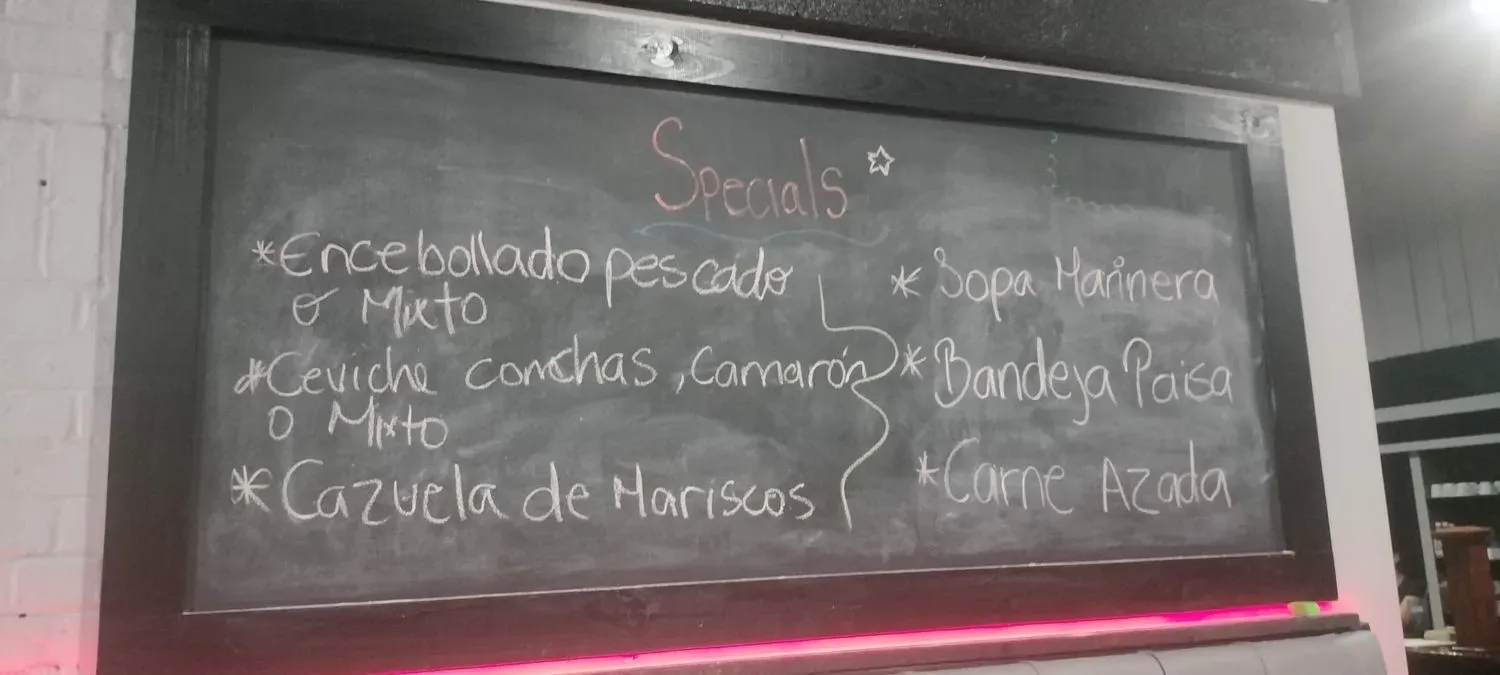 Specials
*Encebollado pescado
o Mixto
*Ceviche conchas, Camarón
o Mixto
*Cazuela de Mariscos
*Sopa Marinera
*Bandeja Paisa
*Carne Azada